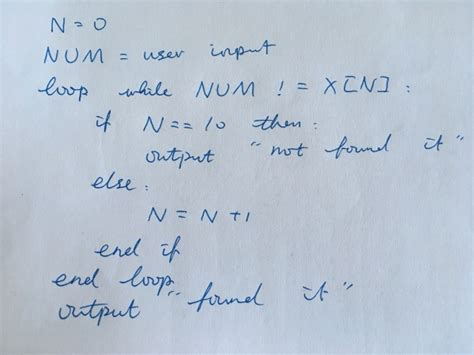 N = 0
NUM = user input
loop while NUM != X[N] :
if N == 10 then :
output "not found it"
else :
N = N + 1
end if
end loop
output "found it"